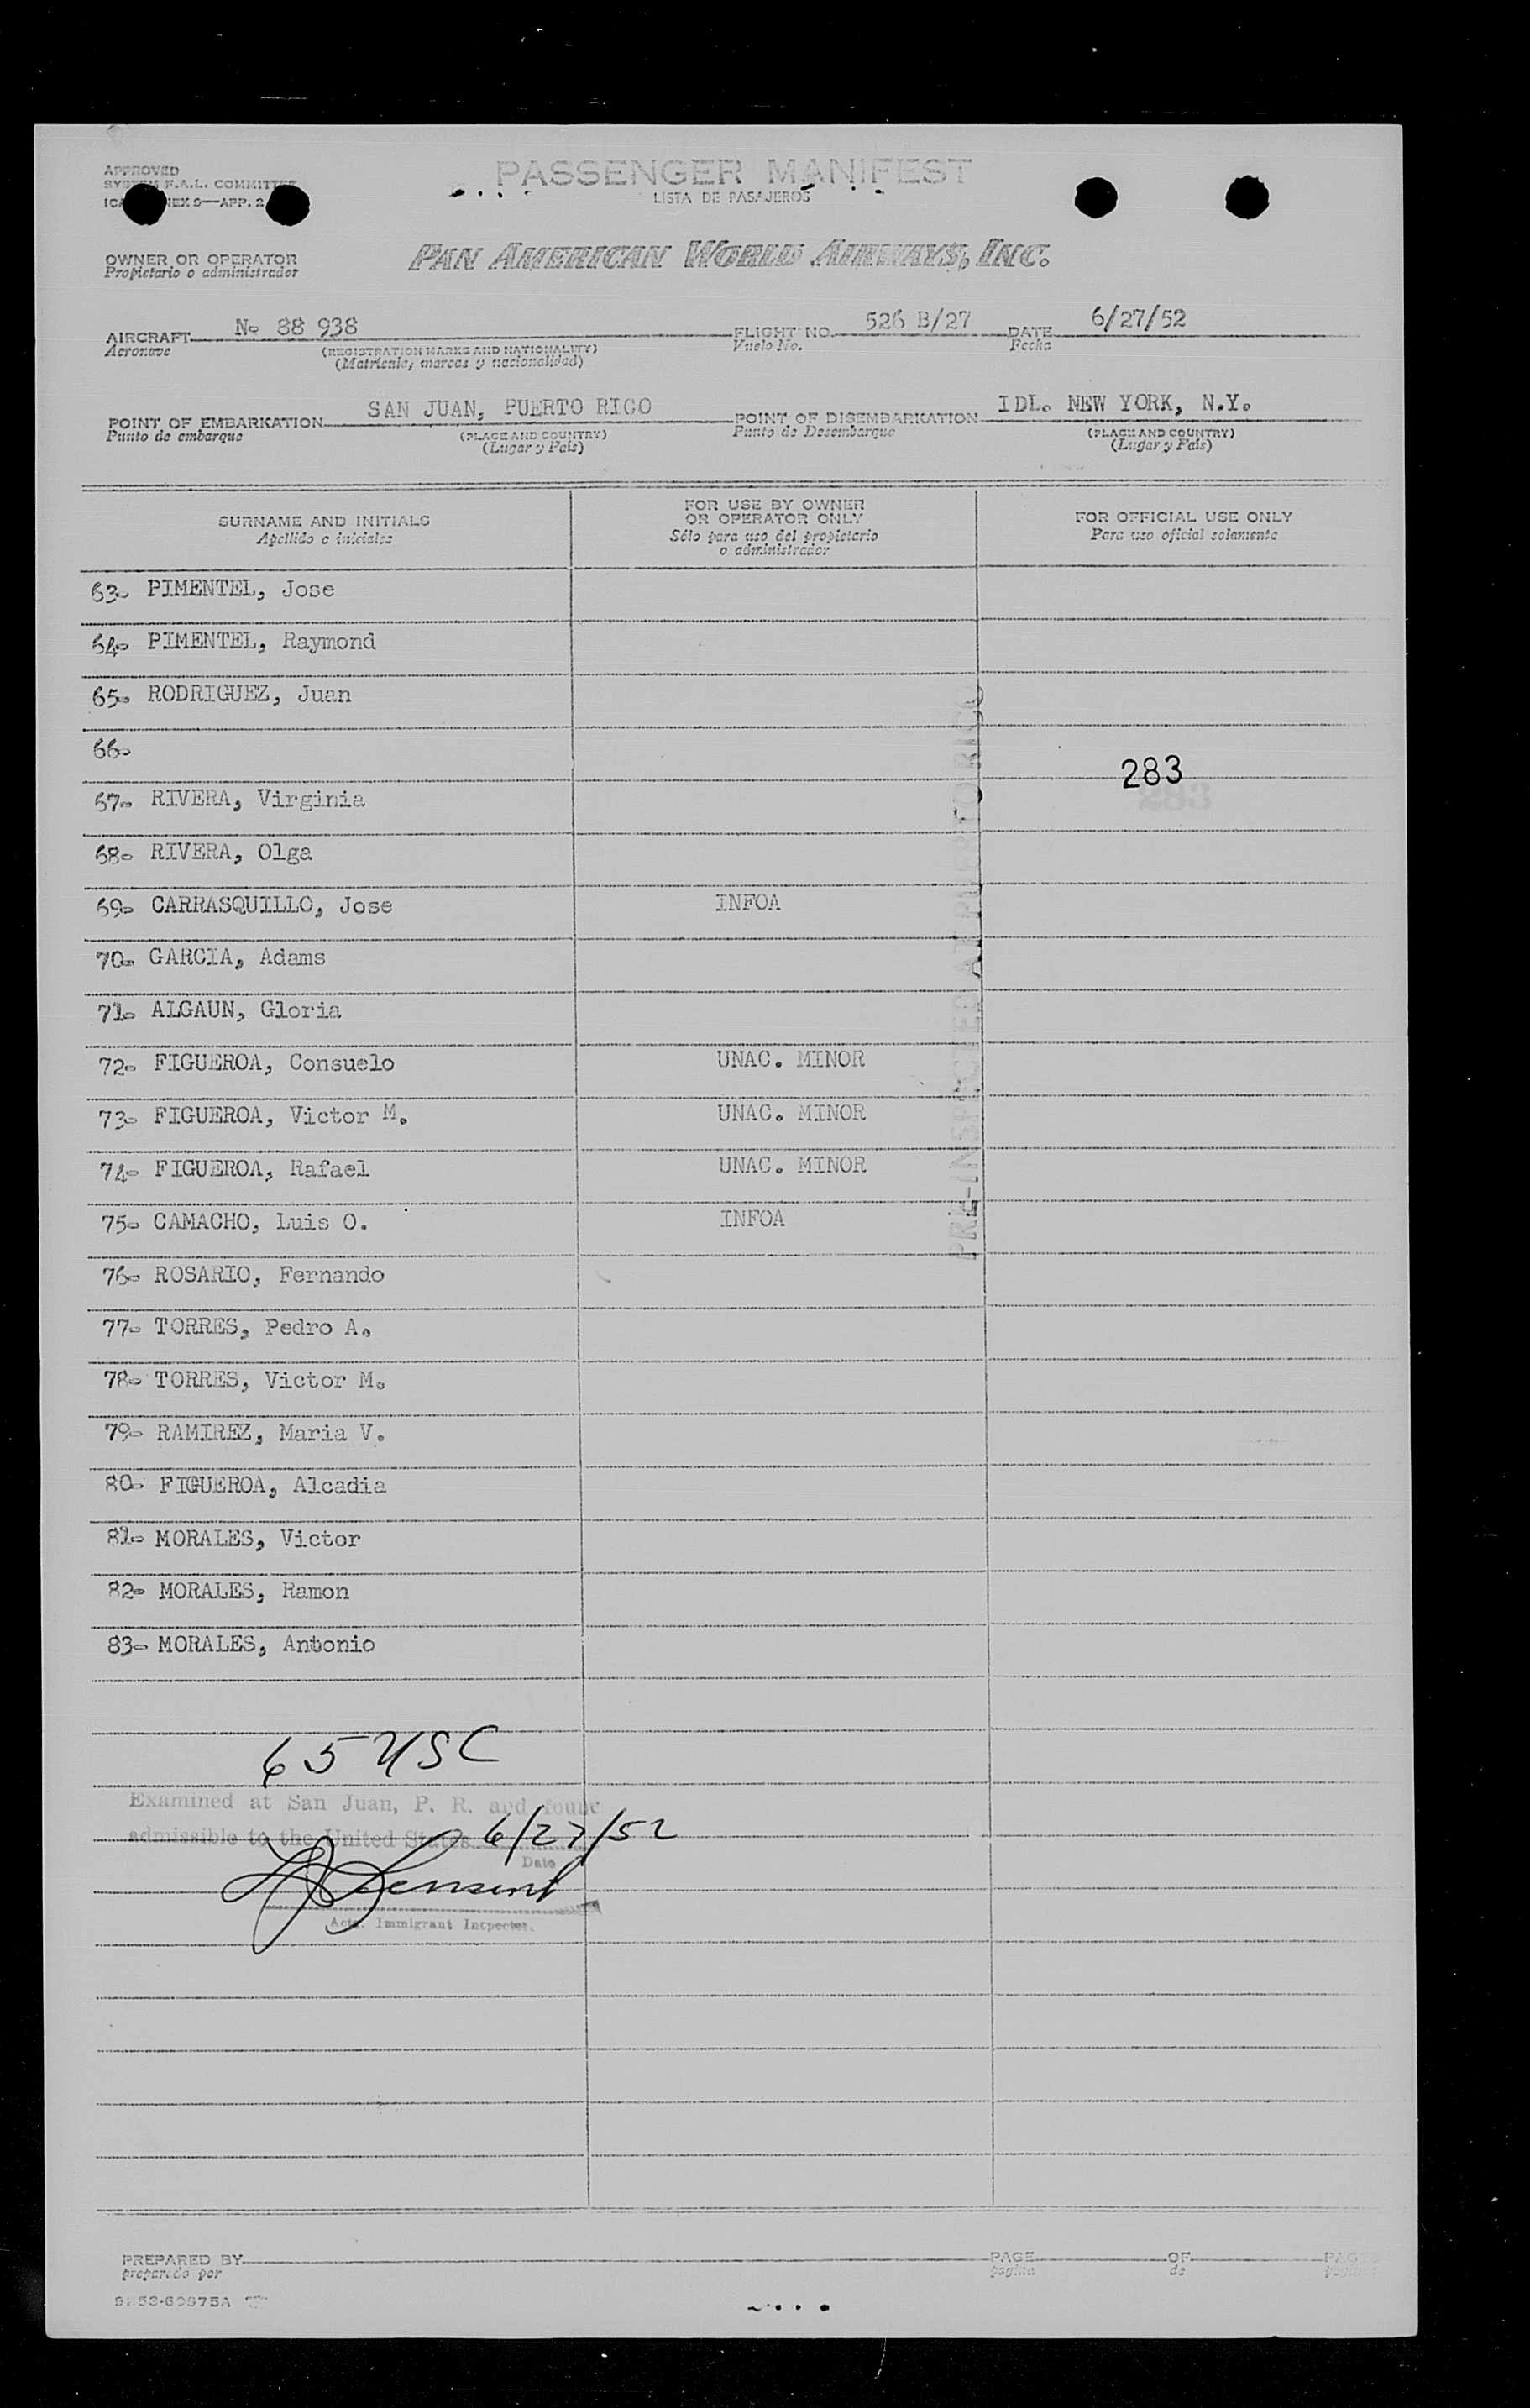 APPROVED
PASSENGER MANIFEST
SYSTEM F.A.L. COMMITTEE
LISTA DE PASAJEROS
9—APP. 2
OWNER OR OPERATOR
Propietario o administrador
PAN AMERICAN WORLD AIRWAYS, INC.
AIRCRAFT No 88 938 FLIGHT NO. 526 B/27 DATE 6/27/52
Aeronave (REGISTRATION MARKS AND NATIONALITY) Vuelo No. Fecha
(Matricula, marcas y nacionalidad)
POINT OF EMBARKATION SAN JUAN, PUERTO RICO POINT OF DISEMBARKATION IDL. NEW YORK, N.Y.
Punto de embarque (PLACE AND COUNTRY) Punto de Desembarque (PLACE AND COUNTRY)
(Lugar y País) (Lugar y País)
SURNAME AND INITIALS
Apellido e iniciales
FOR USE BY OWNER
OR OPERATOR ONLY
Sólo para uso del propietario
o administrador
FOR OFFICIAL USE ONLY
Para uso oficial solamente
63- PIMENTEL, Jose
64- PIMENTEL, Raymond
65- RODRIGUEZ, Juan
66-
283
67- RIVERA, Virginia
68- RIVERA, Olga
69- CARRASQUILLO, Jose INFOA
70- GARCIA, Adams
71- ALGAUN, Gloria
72- FIGUEROA, Consuelo UNAC. MINOR
73- FIGUEROA, Victor M. UNAC. MINOR
74- FIGUEROA, Rafael UNAC. MINOR
75- CAMACHO, Luis O. INFOA
76- ROSARIO, Fernando
77- TORRES, Pedro A.
78- TORRES, Victor M.
79- RAMIREZ, Maria V.
80- FIGUEROA, Alcadia
81- MORALES, Victor
82- MORALES, Ramon
83- MORALES, Antonio
PRE-INSPECTED AT PUERTO RICO
65 USC
Examined at San Juan, P. R. and found
admissible to the United States 6/27/52
Date
Actg. Immigrant Inspector.
PREPARED BY PAGE OF PAGES
preparado por pagina de paginas